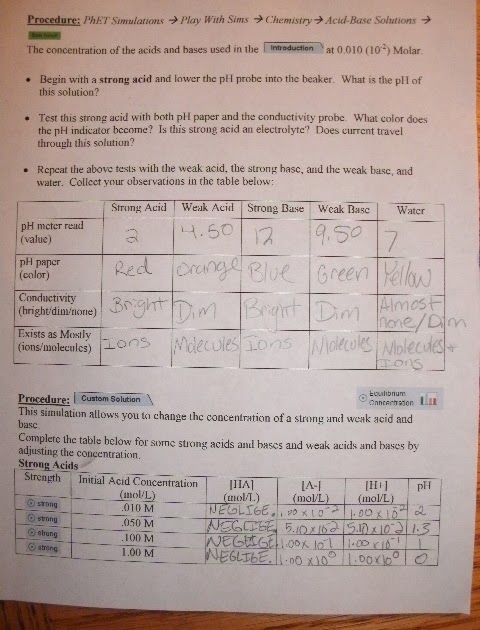 Procedure: PhET Simulations → Play With Sims → Chemistry → Acid-Base Solutions →
The concentration of the acids and bases used in the Introduction at 0.010 (10⁻²) Molar.
• Begin with a strong acid and lower the pH probe into the beaker. What is the pH of
this solution?
• Test this strong acid with both pH paper and the conductivity probe. What color does
the pH indicator become? Is this strong acid an electrolyte? Does current travel
through this solution?
• Repeat the above tests with the weak acid, the strong base, and the weak base, and
water. Collect your observations in the table below:
Strong Acid Weak Acid Strong Base Weak Base Water
pH meter read
(value) 2 4.50 12 9.50 7
pH paper
(color) Red orange Blue Green Yellow
Conductivity
(bright/dim/none) Bright Dim Bright Dim Almost
none/Dim
Exists as Mostly
(ions/molecules) Ions Molecules Ions Molecules Molecules +
Ions
Procedure: Custom Solution Equilibrium
Concentration
This simulation allows you to change the concentration of a strong and weak acid and
base.
Complete the table below for some strong acids and bases and weak acids and bases by
adjusting the concentration.
Strong Acids
Strength Initial Acid Concentration [HA] [A-] [H+] pH
(mol/L) (mol/L) (mol/L) (mol/L)
strong .010 M NEGLIGE. 1.00 x 10⁻² 1.00 x 10⁻² 2
strong .050 M NEGLIGE 5.10 x 10⁻² 5.10 x 10⁻² 1.3
strong .100 M NEGLIGE. 1.00 x 10⁻¹ 1.00 x 10⁻¹ 1
strong 1.00 M NEGLIGE. 1.00 x 10⁰ 1.00 x 10⁰ 0